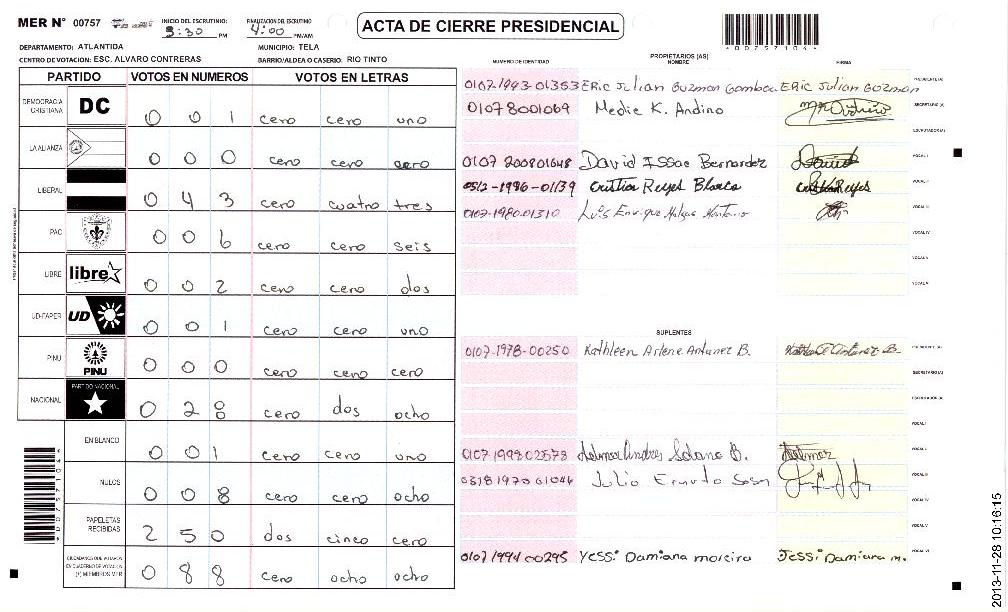 MER N° 00757
INICIO DEL ESCRUTINIO: 3:30 PM
FINALIZACION DEL ESCRUTINIO 4:00 PM/AM
ACTA DE CIERRE PRESIDENCIAL
*00757104*
DEPARTAMENTO: ATLANTIDA
MUNICIPIO: TELA
CENTRO DE VOTACION: ESC. ALVARO CONTRERAS
BARRIO/ALDEA O CASERIO: RIO TINTO
PARTIDO VOTOS EN NUMEROS VOTOS EN LETRAS
DEMOCRACIA CRISTIANA DC 0 0 1 cero cero uno
LA ALIANZA 0 0 0 cero cero cero
LIBERAL 0 4 3 cero cuatro tres
PAC 0 0 6 cero cero seis
LIBRE libre 0 0 2 cero cero dos
UD-FAPER UD 0 0 1 cero cero uno
PINU PINU 0 0 0 cero cero cero
NACIONAL PARTIDO NACIONAL 0 2 8 cero dos ocho
EN BLANCO 0 0 1 cero cero uno
NULOS 0 0 8 cero cero ocho
PAPELETAS RECIBIDAS 2 5 0 dos cinco cero
CIUDADANOS QUE VOTARON EN CUADERNO DE VOTACION (+) MIEMBROS MER 0 8 8 cero ocho ocho
*00757104*
PROPIETARIOS (AS)
NUMERO DE IDENTIDAD NOMBRE FIRMA
0107-1993-01353 Eric Julian Guzman Gamboa Eric Julian Guzman PRESIDENTE (A)
01078001069 Medie K. Andino SECRETARIO (A)
ESCRUTADOR (A)
0107 200801648 David Issac Bernardez David VOCAL I
0512-1996-01139 Cristian Reyes Blanco Reyes VOCAL II
0107-1980-01310 Luis Enrique VOCAL III
VOCAL IV
VOCAL V
VOCAL VI
SUPLENTES
0107-1978-00250 Kathleen Arlene Antunez B. Kathleen Antunez B. PRESIDENTE (A)
SECRETARIO (A)
ESCRUTADOR (A)
VOCAL I
0107 1998 02573 Andres Solano B. VOCAL II
0318 1970 01044 Julio Ernesto Sosa VOCAL III
VOCAL IV
VOCAL V
0107 1994 00295 Yessi Damiana moreira Jessi Damiana m. VOCAL VI
2013-11-28 10:16:15